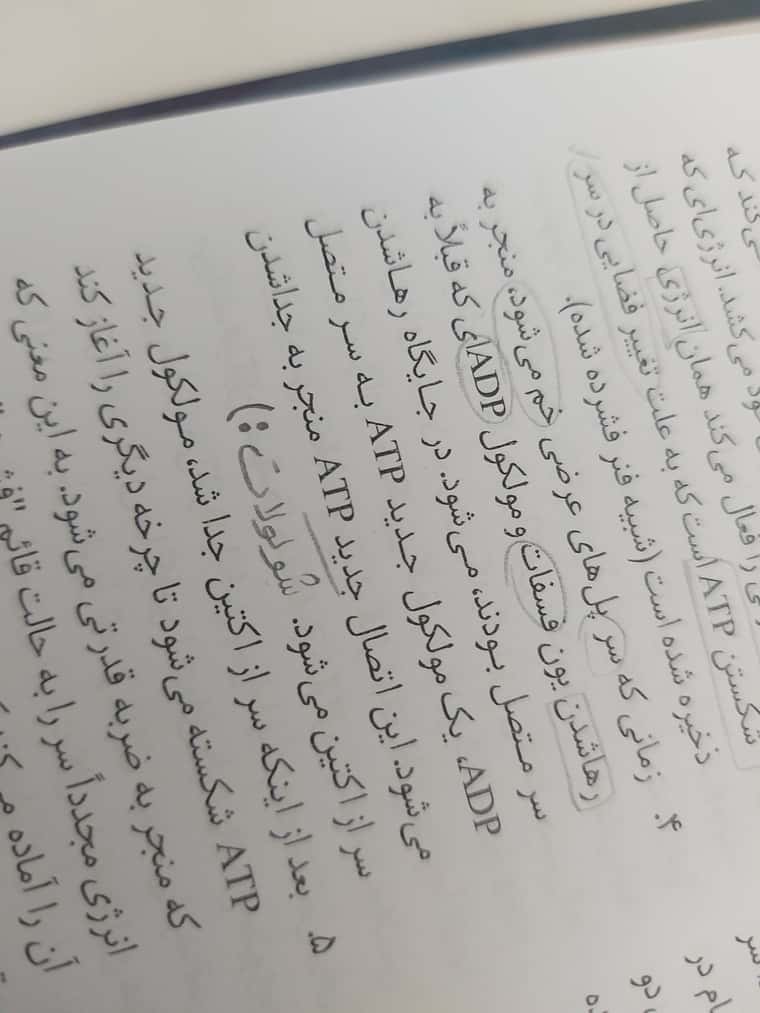 می‌کند که
خود می‌کشد. انرژی‌ای که
را فعال می‌کند همان انرژی حاصل از
شکستن ATP است که به علت تغییر فضایی در سر
ذخیره شده است (شبیه فنر فشرده شده).
۴. زمانی که سر پل‌های عرضی خم می‌شود، منجر به
رهاشدن یون فسفات و مولکول ADPای که قبلاً به
سر متصل بودند، می‌شود. در جایگاه رهاشدن
ADP، یک مولکول جدید ATP به سر متصل
می‌شود. این اتصال جدید ATP منجر به جداشدن
سر از اکتین می‌شود.
۵. بعد از اینکه سر از اکتین جدا شد، مولکول جدید
ATP شکسته می‌شود تا چرخه دیگری را آغاز کند
که منجر به ضربه قدرتی می‌شود. به این معنی که
انرژی مجدداً سر را به حالت قائم
آن را آماده
سر
در
دو